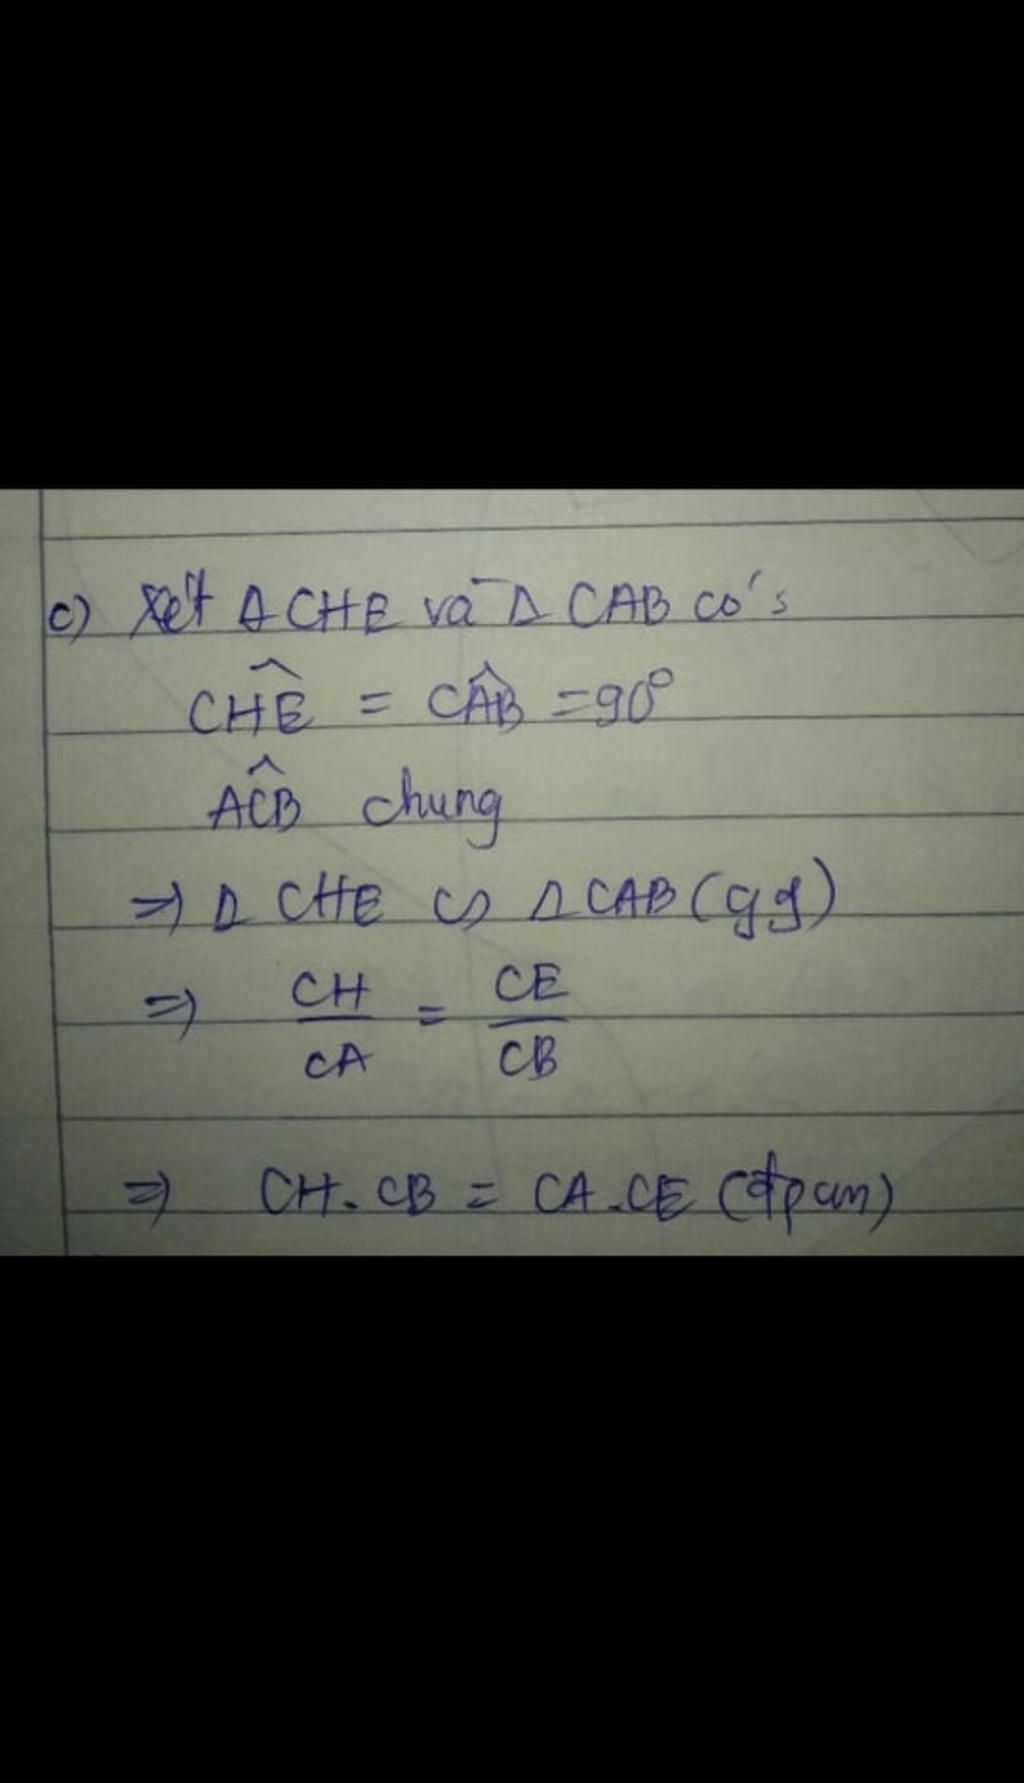 c) Xét Δ CHE và Δ CAB có:
CHE^ = CAB^ = 90°
ACB^ chung
=> Δ CHE ∽ Δ CAB (gg)
=> CH/CA = CE/CB
=> CH.CB = CA.CE (đpcm)